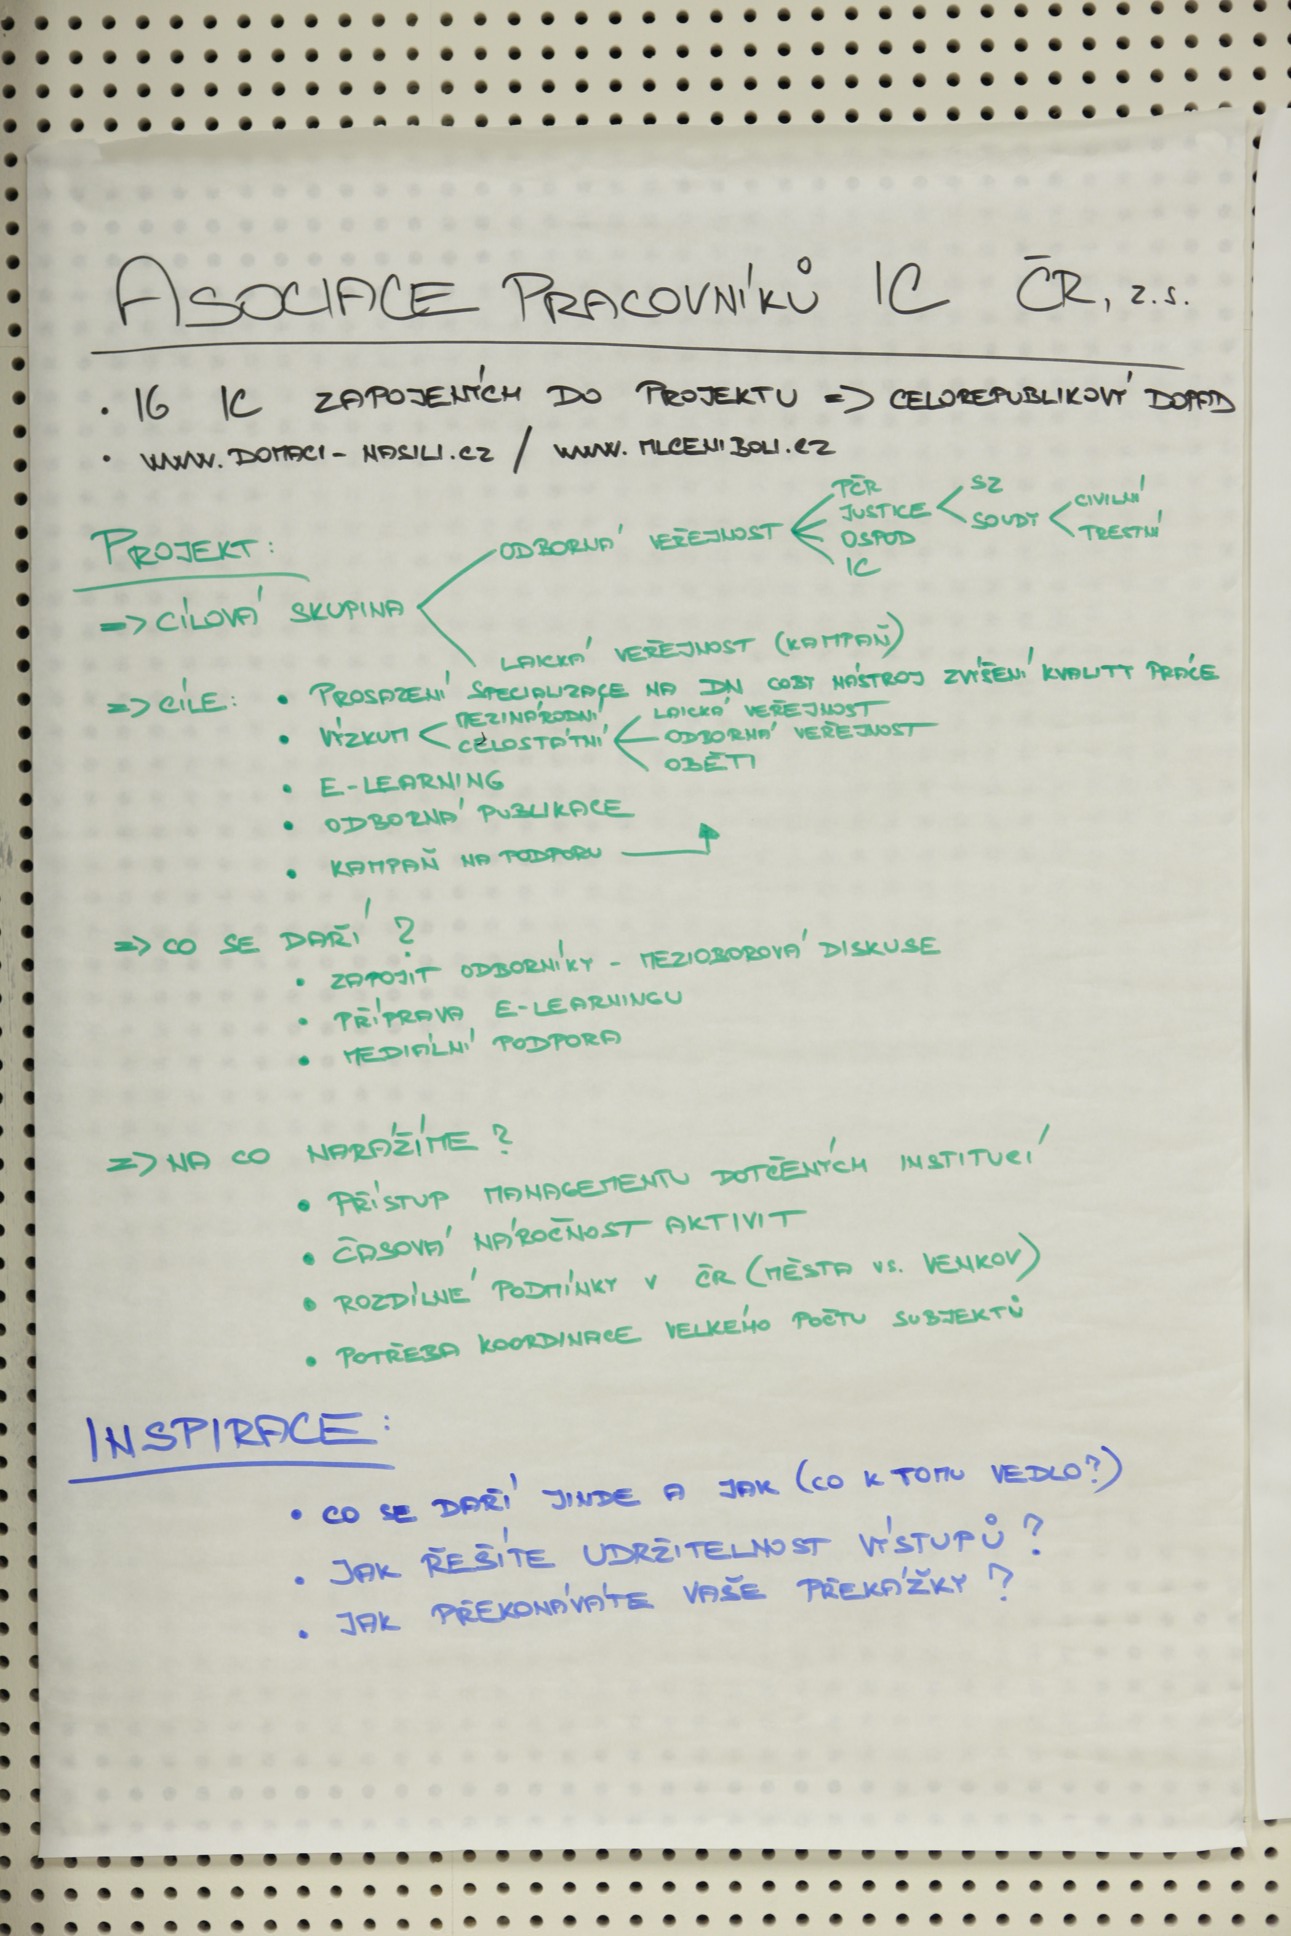 ASOCIACE PRACOVNÍKŮ IC ČR, z.s.
• 16 IC ZAPOJENÝCH DO PROJEKTU => CELOREPUBLIKOVÝ DOPAD
• WWW.DOMACI-NASILI.CZ / WWW.MLCENIBOLI.CZ
PROJEKT:
=> CÍLOVÁ SKUPINA
ODBORNÁ VEŘEJNOST
PČR
JUSTICE
OSPOD
IC
SZ
SOUDY
CIVILNÍ
TRESTNÍ
LAICKÁ VEŘEJNOST (KAMPAŇ)
=> CÍLE: • PROSAZENÍ SPECIALIZACE NA DN COBY NÁSTROJ ZVÝŠENÍ KVALITY PRÁCE
• VÝZKUM
MEZINÁRODNÍ
CELOSTÁTNÍ
LAICKÁ VEŘEJNOST
ODBORNÁ VEŘEJNOST
OBĚTI
• E-LEARNING
• ODBORNÁ PUBLIKACE
• KAMPAŇ NA PODPORU
=> CO SE DAŘÍ ?
• ZAPOJIT ODBORNÍKY - MEZIOBOROVÁ DISKUSE
• PŘÍPRAVA E-LEARNINGU
• MEDIÁLNÍ PODPORA
=> NA CO NARÁŽÍME ?
• PŘÍSTUP MANAGEMENTU DOTČENÝCH INSTITUCÍ
• ČASOVÁ NÁROČNOST AKTIVIT
• ROZDÍLNÉ PODMÍNKY V ČR (MĚSTA vs. VENKOV)
• POTŘEBA KOORDINACE VELKÉHO POČTU SUBJEKTŮ
INSPIRACE:
• CO SE DAŘÍ JINDE A JAK (CO K TOMU VEDLO?)
• JAK ŘEŠÍTE UDRŽITELNOST VÝSTUPŮ ?
• JAK PŘEKONÁVÁTE VAŠE PŘEKÁŽKY ?